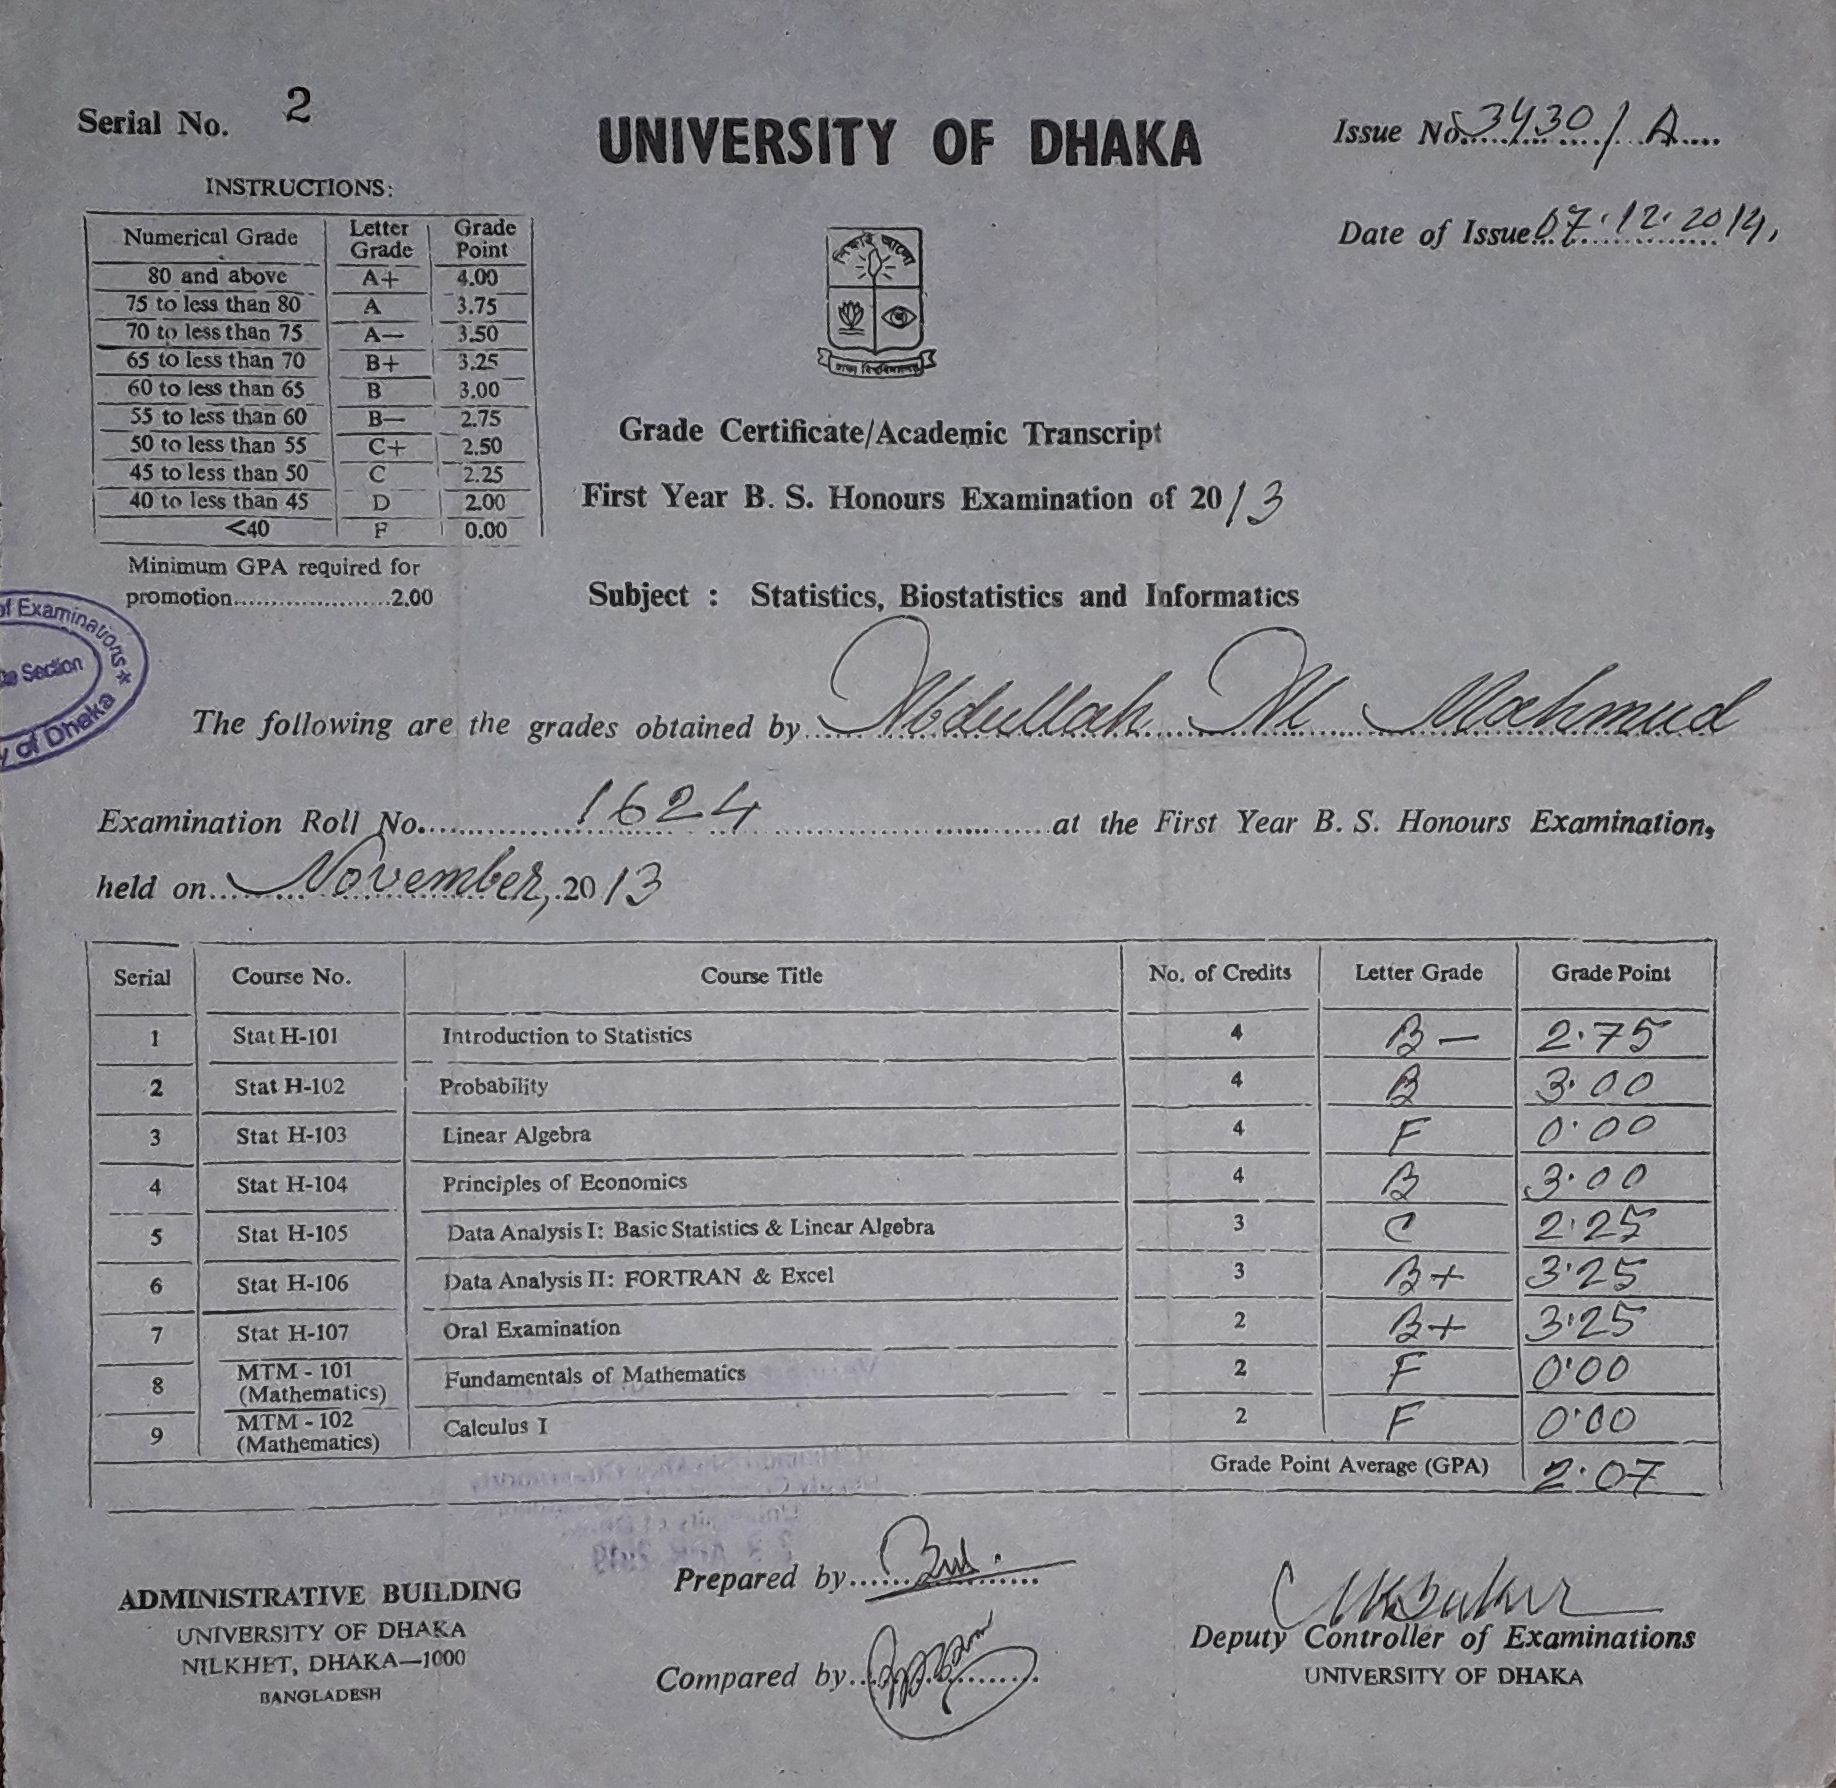 Serial No. 2
UNIVERSITY OF DHAKA
Issue No. 3430/A
Date of Issue 07.12.2014,
INSTRUCTIONS:
Numerical Grade Letter Grade Grade Point
80 and above A+ 4.00
75 to less than 80 A 3.75
70 to less than 75 A— 3.50
65 to less than 70 B+ 3.25
60 to less than 65 B 3.00
55 to less than 60 B— 2.75
50 to less than 55 C+ 2.50
45 to less than 50 C 2.25
40 to less than 45 D 2.00
<40 F 0.00
Minimum GPA required for
promotion.....................2.00
শিক্ষাই আলো
ঢাকা বিশ্ববিদ্যালয়
Grade Certificate/Academic Transcript
First Year B. S. Honours Examination of 2013
Subject : Statistics, Biostatistics and Informatics
of Examinations
Section
of Dhaka
The following are the grades obtained by Abdullah Al Mahmud
Examination Roll No. 1624 at the First Year B. S. Honours Examination,
held on November, 2013
Serial Course No. Course Title No. of Credits Letter Grade Grade Point
1 Stat H-101 Introduction to Statistics 4 B— 2.75
2 Stat H-102 Probability 4 B 3.00
3 Stat H-103 Linear Algebra 4 F 0.00
4 Stat H-104 Principles of Economics 4 B 3.00
5 Stat H-105 Data Analysis I: Basic Statistics & Linear Algebra 3 C 2.25
6 Stat H-106 Data Analysis II: FORTRAN & Excel 3 B+ 3.25
7 Stat H-107 Oral Examination 2 B+ 3.25
8 MTM - 101 (Mathematics) Fundamentals of Mathematics 2 F 0.00
9 MTM - 102 (Mathematics) Calculus I 2 F 0.00
Grade Point Average (GPA) 2.07
Prepared by
Compared by
ADMINISTRATIVE BUILDING
UNIVERSITY OF DHAKA
NILKHET, DHAKA—1000
BANGLADESH
Deputy Controller of Examinations
UNIVERSITY OF DHAKA